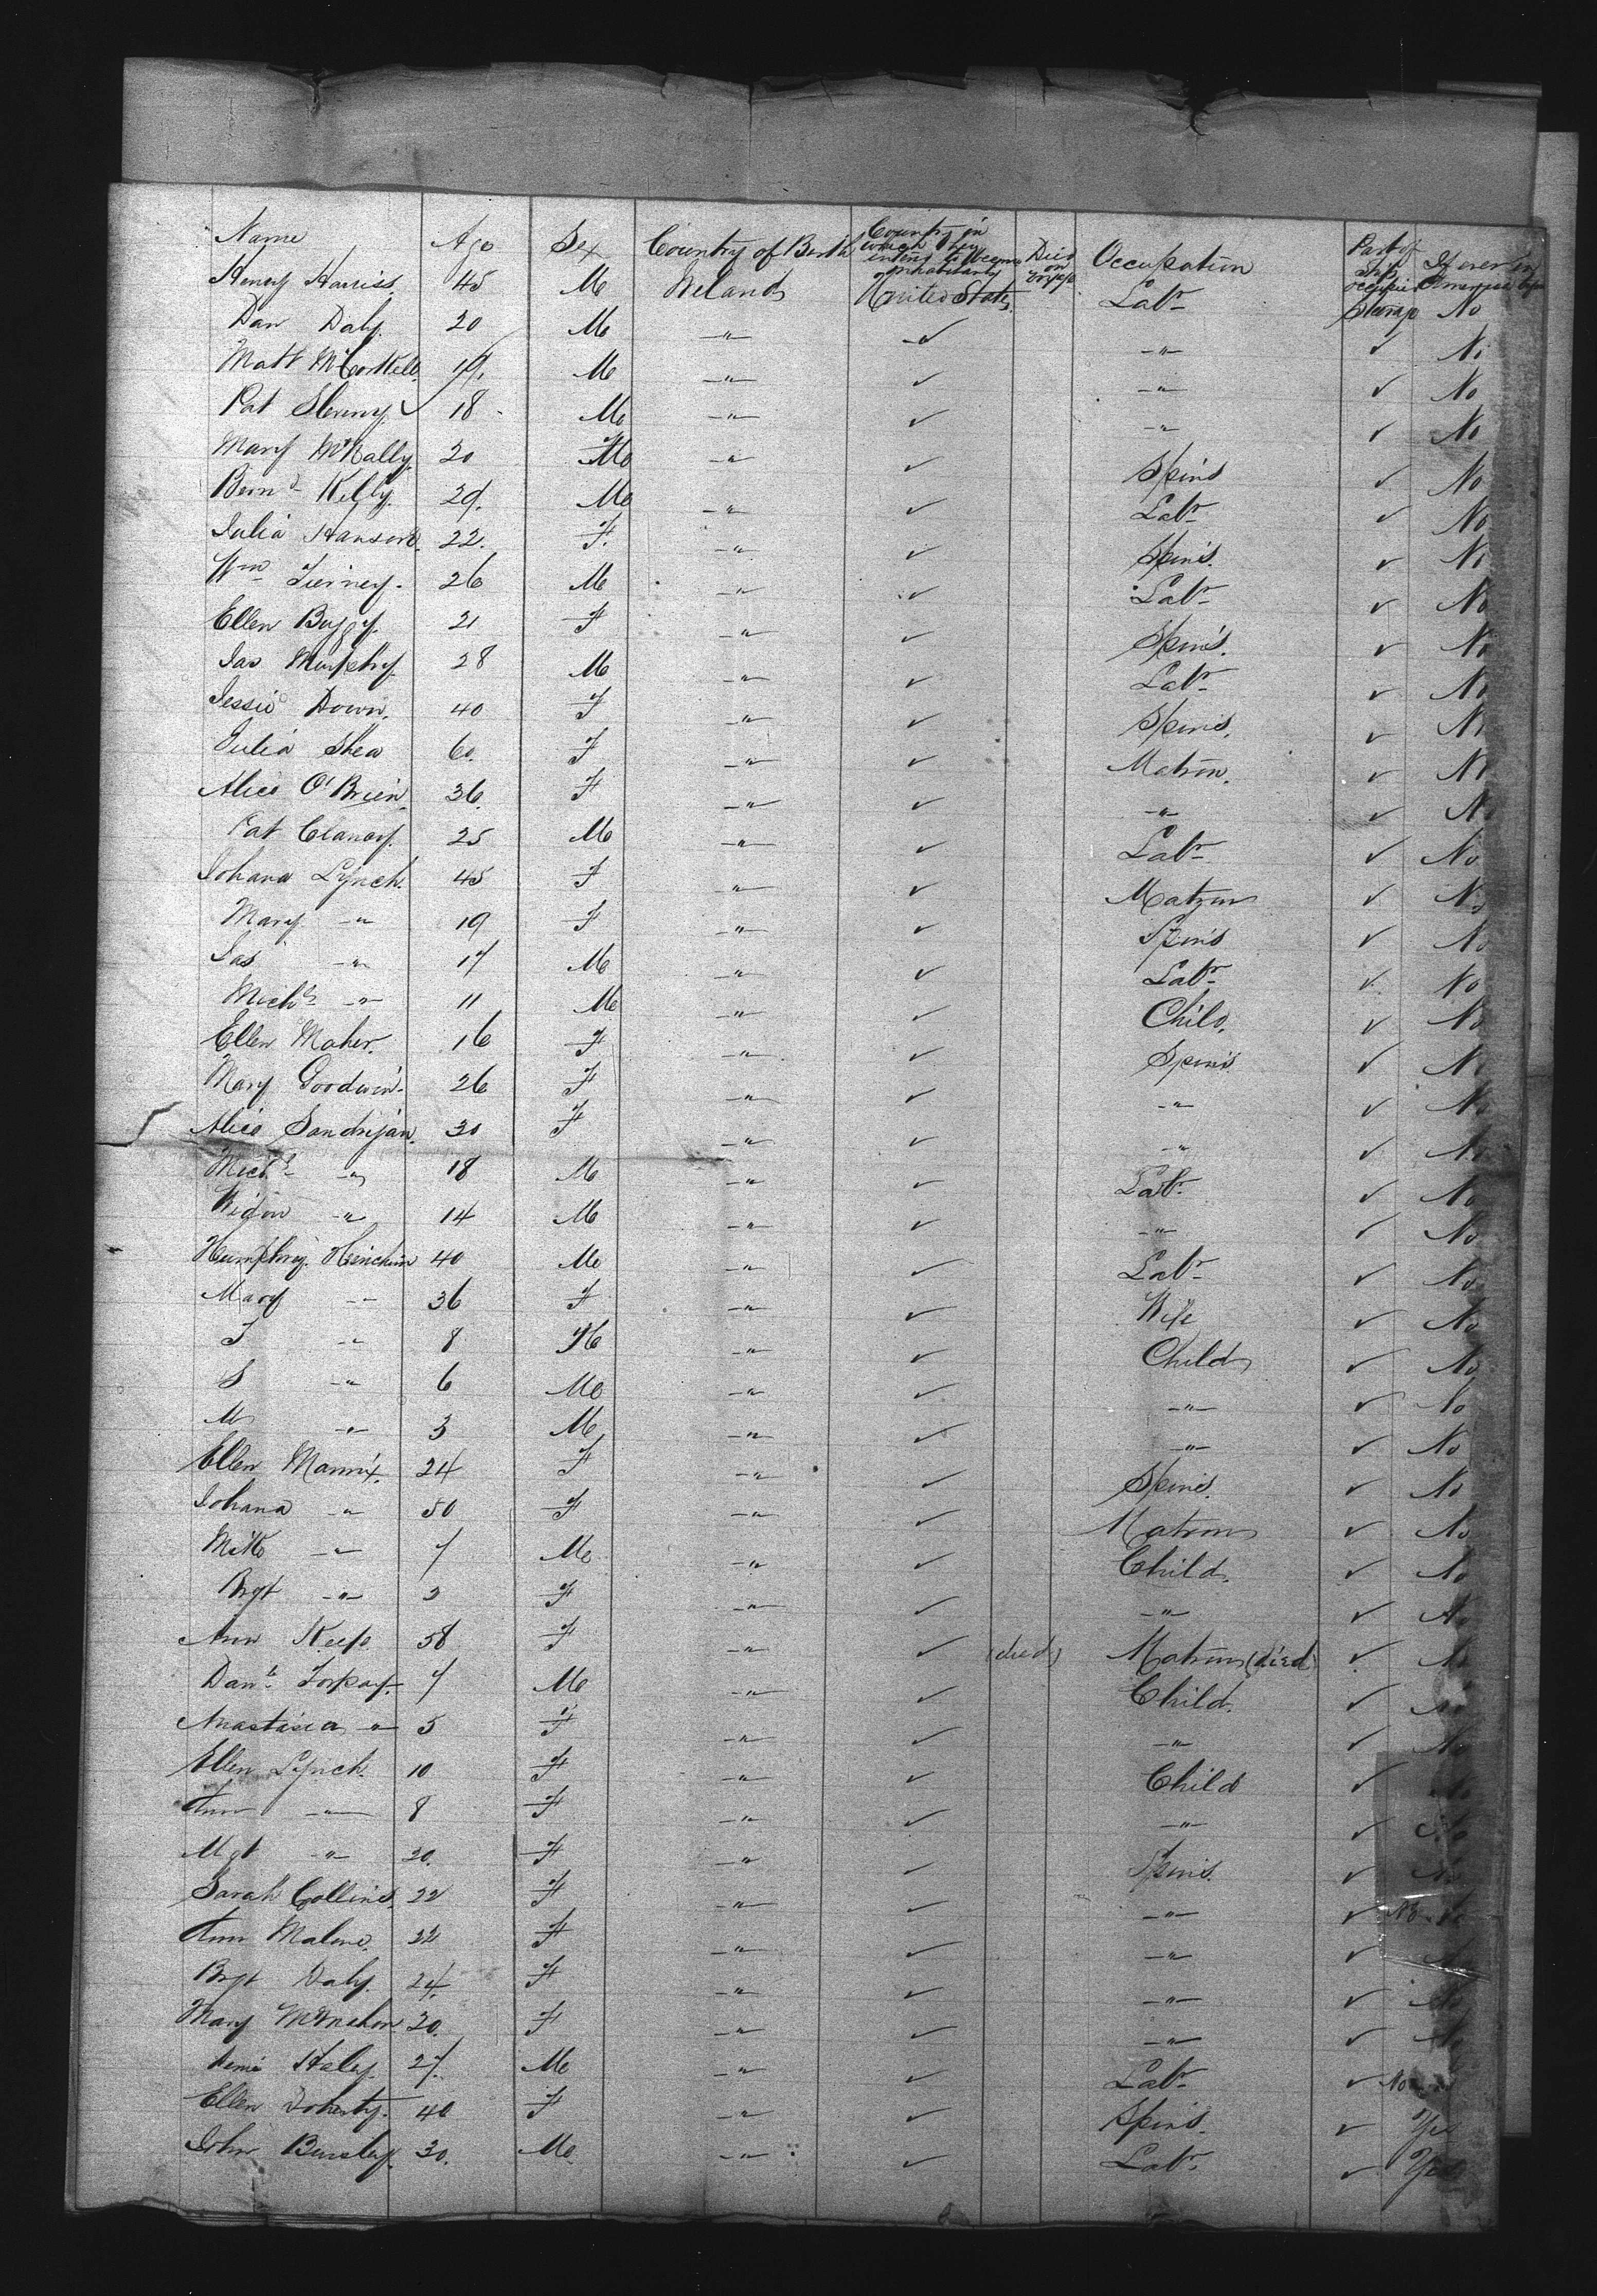 Name Age Sex Country of Birth Country in which they intend to become inhabitants Died on voyage Occupation Part of Ship occupied If ever in America before
Henry Harriss. 45 M Ireland United States. Labr Steerage No
Dan Daly. 20 M -"- ✓ -"- ✓ No
Matt McCorkell. 19. M -"- ✓ -"- ✓ No
Pat 18 M -"- ✓ -"- ✓ No
Mary McNally. 20 F -"- ✓ Spins ✓ No
Bernd Kelly. 29. M -"- ✓ Labr ✓ No
Julia 22. F. -"- ✓ Spins. ✓ No
Wm Tierney. 26 M -"- ✓ Labr ✓ No
Ellen Buggy. 21 F -"- ✓ Spins. ✓ No
Jas Murphy. 28 M -"- ✓ Labr ✓ No
Jessie Down. 40 F -"- ✓ Spins. ✓ No
Julia Shea 60. F -"- ✓ Matron. ✓ No
Alice O'Brien. 36. F -"- ✓ -"- ✓ No
Pat Clancy. 25 M -"- ✓ Labr ✓ No
Johana Lynch. 45 F -"- ✓ Matron ✓ No
Mary -"- 19 F -"- ✓ Spins ✓ No
Jas -"- 17 M -"- ✓ Labr ✓ No
Michl -"- 11 M -"- ✓ Child. ✓ No
Ellen Maher. 16 F -"- ✓ Spins ✓ No
Mary Goodwin. 26 F -"- ✓ -"- ✓ No
Alice 30 F -"- ✓ -"- ✓ No
Michl -"- 18 M -"- ✓ Labr ✓ No
-"- 14 M -"- ✓ -"- ✓ No
Humphrey 40 M -"- ✓ Labr ✓ No
Mary -"- 36 F -"- ✓ Wife ✓ No
J -"- 8 M -"- ✓ Child ✓ No
S -"- 6 M -"- ✓ -"- ✓ No
M -"- 3 M -"- ✓ -"- ✓ No
Ellen Mannix. 24 F -"- ✓ Spins. ✓ No
Johana -"- 50 F -"- ✓ Matron ✓ No
-"- 7 M -"- ✓ Child. ✓ No
Brgt -"- 3 F -"- ✓ -"- ✓ No
Ann Keefe. 58 F -"- ✓ (died) Matron (died) ✓ No
Danl 7 M -"- ✓ Child. ✓ No
Anastasia -"- 5 F -"- ✓ -"- ✓ No
Ellen Lynch. 10 F -"- ✓ Child ✓ No
Ann -"- 8 F -"- ✓ -"- ✓ No
Mgt -"- 20. F -"- ✓ Spins. ✓ No
Sarah Collins. 22 F -"- ✓ -"- ✓ No
Ann Malone. 22 F -"- ✓ -"- ✓ No
Brgt Daly. 24. F -"- ✓ -"- ✓ No
Mary McMahon. 20. F -"- ✓ -"- ✓ No
Haley. 27. M -"- ✓ Labr ✓ No
Ellen Doherty. 40 F -"- ✓ Spins. ✓ Yes
John 30. M -"- ✓ Labr. ✓ Yes